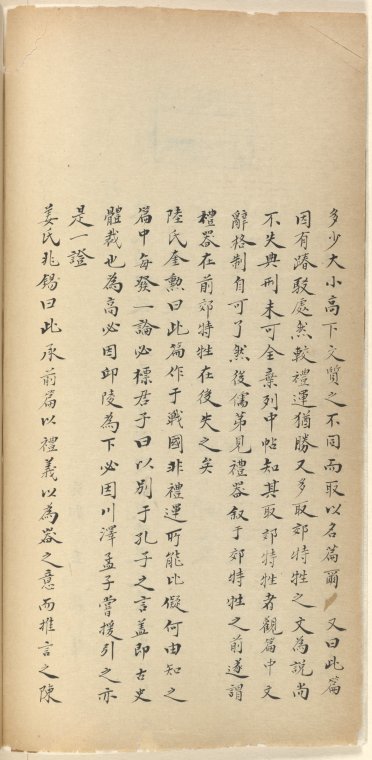 多少大小高下文質之不同而取以名篇爾 又曰此篇
因有踳駁處然較禮運猶勝又多取郊特牲之文為說尚
不失典刑未可全棄列中帖知其取郊特牲者觀篇中文
辭格制自可了然後儒第見禮器叙于郊特牲之前遂謂
禮器在前郊特牲在後失之矣
陸氏奎勲曰此篇作于戰國非禮運所能比儗何由知之
篇中每發一論必標君子曰以別于孔子之言蓋即古史
體裁也為高必因邱陵為下必因川澤孟子嘗援引之亦
是一證
姜氏兆錫曰此承前篇以禮義以為器之意而推言之陳